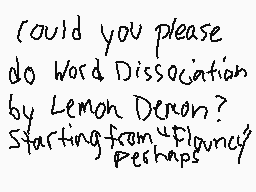 could you please
do Word Dissociation
by Lemon Demon?
starting from "Flouncy"
perhaps